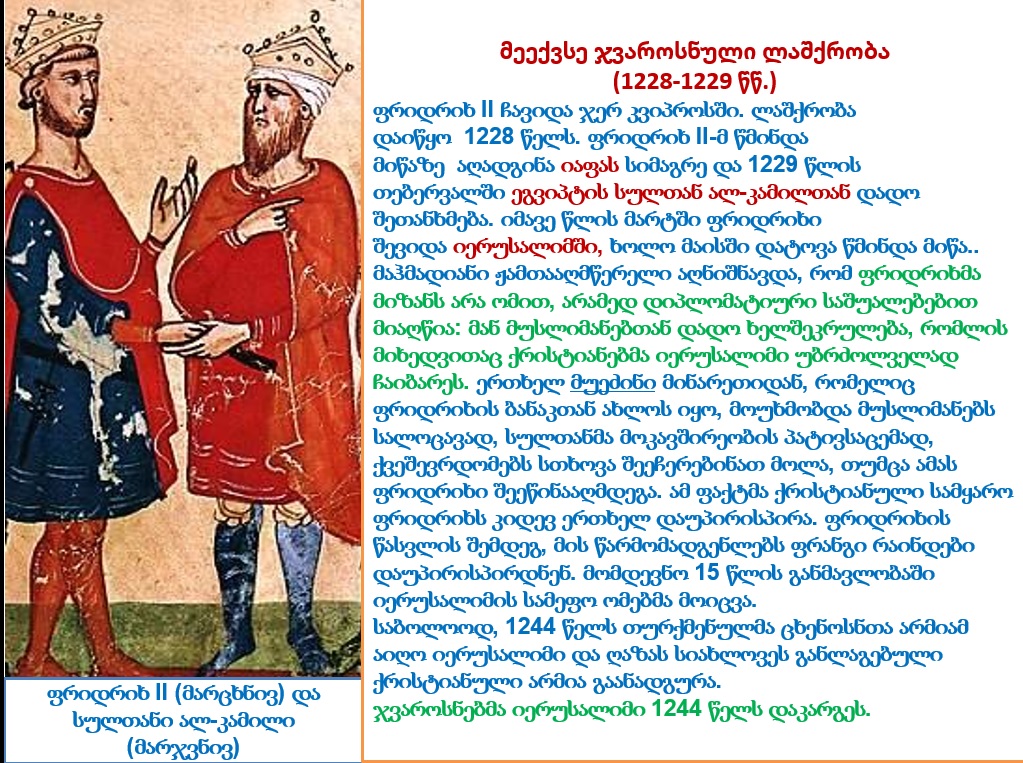 მეექვსე ჯვაროსნული ლაშქრობა
(1228-1229 წწ.)
ფრიდრიხ II ჩავიდა ჯერ კვიპროსში. ლაშქრობა
დაიწყო 1228 წელს. ფრიდრიხ II-მ წმინდა
მიწაზე აღადგინა იაფას სიმაგრე და 1229 წლის
თებერვალში ეგვიპტის სულთან ალ-კამილთან დადო
შეთანხმება. იმავე წლის მარტში ფრიდრიხი
შევიდა იერუსალიმში, ხოლო მაისში დატოვა წმინდა მიწა..
მაჰმადიანი ჟამთააღმწერელი აღნიშნავდა, რომ ფრიდრიხმა
მიზანს არა ომით, არამედ დიპლომატიური საშუალებებით
მიაღწია: მან მუსლიმანებთან დადო ხელშეკრულება, რომლის
მიხედვითაც ქრისტიანებმა იერუსალიმი უბრძოლველად
ჩაიბარეს. ერთხელ მუეძინი მინარეთიდან, რომელიც
ფრიდრიხის ბანაკთან ახლოს იყო, მოუხმობდა მუსლიმანებს
სალოცავად, სულთანმა მოკავშირეობის პატივსაცემად,
ქვეშევრდომებს სთხოვა შეეჩერებინათ მოლა, თუმცა ამას
ფრიდრიხი შეეწინააღმდეგა. ამ ფაქტმა ქრისტიანული სამყარო
ფრიდრიხს კიდევ ერთხელ დაუპირისპირა. ფრიდრიხის
წასვლის შემდეგ, მის წარმომადგენლებს ფრანგი რაინდები
დაუპირისპირდნენ. მომდევნო 15 წლის განმავლობაში
იერუსალიმის სამეფო ომებმა მოიცვა.
საბოლოოდ, 1244 წელს თურქმენულმა ცხენოსნთა არმიამ
აიღო იერუსალიმი და ღაზას სიახლოვეს განლაგებული
ქრისტიანული არმია გაანადგურა.
ჯვაროსნებმა იერუსალიმი 1244 წელს დაკარგეს.
ფრიდრიხ II (მარცხნივ) და
სულთანი ალ-კამილი
(მარჯვნივ)